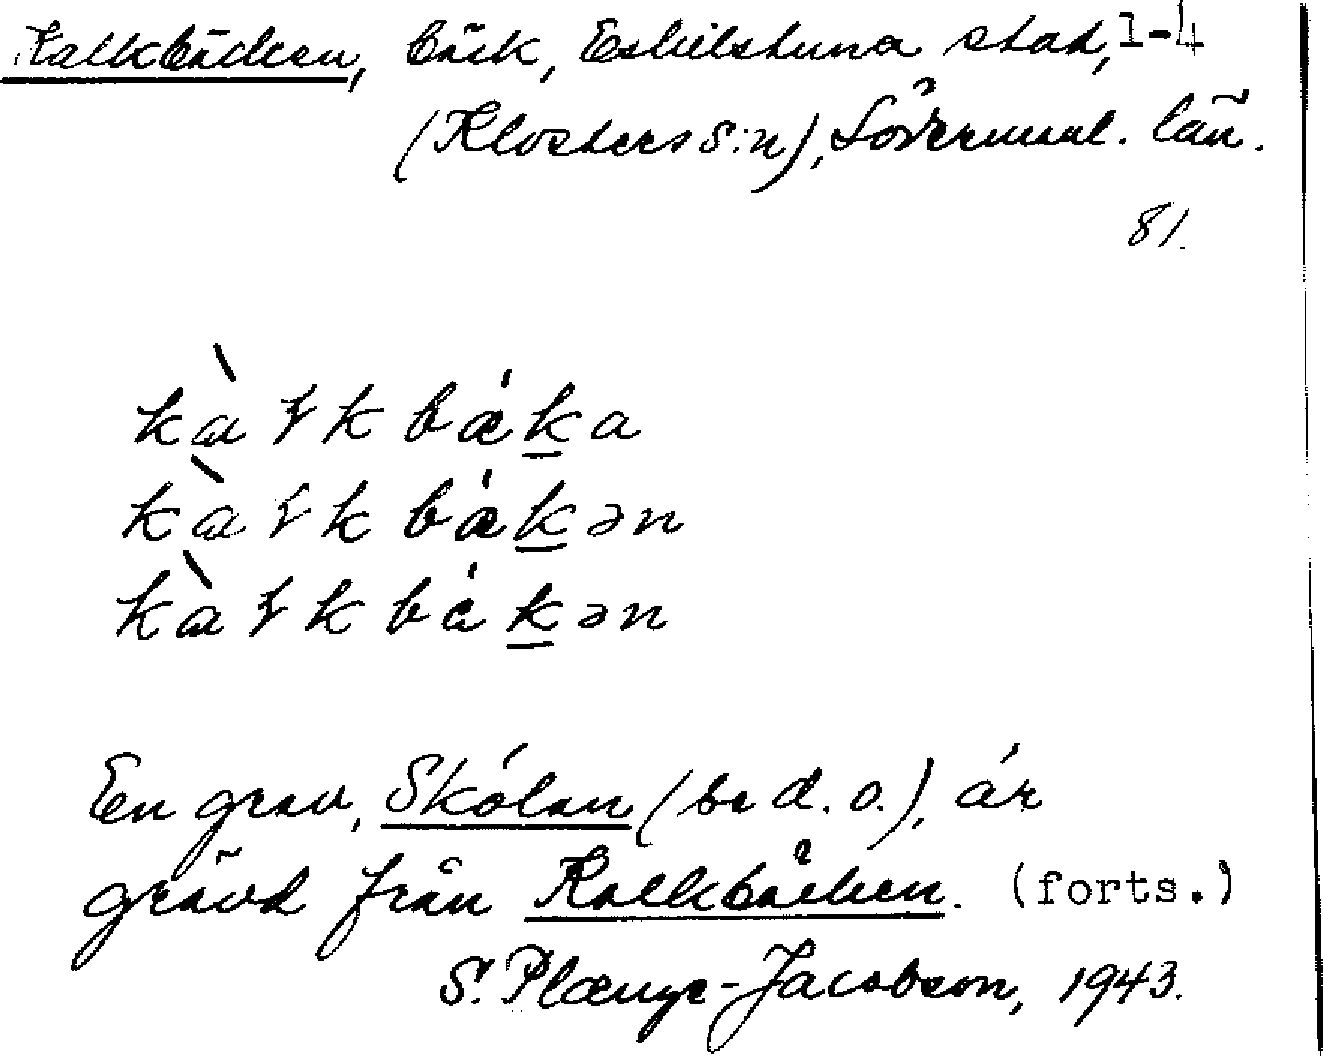 Kalkbäcken, bäck, Eskilstuna stad, 1-4
(Klosters s:n), Södermanl. län.
81.
kàɽkbǽka
kàɽkbǽkən
kàɽkbákən
En grav, Skölan (se d. o.), är
grävd från Kalkbäcken. (forts.)
S. Plænge-Jacobson, 1943.